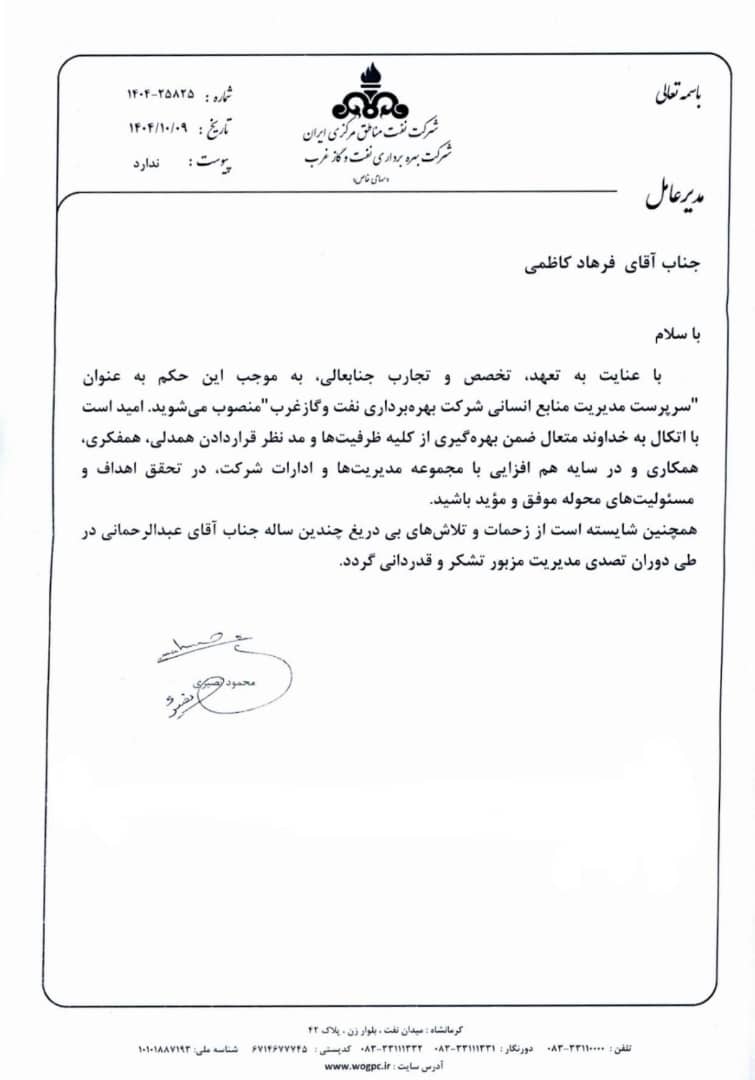 باسمه تعالی
شماره : ۱۴۰۴-۲۵۸۲۵
تاریخ : ۱۴۰۴/۱۰/۰۹
پیوست : ندارد
شرکت نفت مناطق مرکزی ایران
شرکت بهره برداری نفت و گاز غرب
«سهامی خاص»
مدیرعامل
جناب آقای فرهاد کاظمی
با سلام
با عنایت به تعهد، تخصص و تجارب جنابعالی، به موجب این حکم به عنوان
"سرپرست مدیریت منابع انسانی شرکت بهره‌برداری نفت وگازغرب"منصوب می‌شوید. امید است
با اتکال به خداوند متعال ضمن بهره‌گیری از کلیه ظرفیت‌ها و مد نظر قراردادن همدلی، همفکری،
همکاری و در سایه هم افزایی با مجموعه مدیریت‌ها و ادارات شرکت، در تحقق اهداف و
مسئولیت‌های محوله موفق و مؤید باشید.
همچنین شایسته است از زحمات و تلاش‌های بی دریغ چندین ساله جناب آقای عبدالرحمانی در
طی دوران تصدی مدیریت مزبور تشکر و قدردانی گردد.
محمود نصیری
کرمانشاه : میدان نفت ، بلوار زن ، پلاک ۴۲
تلفن : ۳۳۱۱۰۰۰۰-۰۸۳ دورنگار : ۳۳۱۱۱۳۳۱-۰۸۳ ۳۳۱۱۱۳۳۲-۰۸۳ کدپستی : ۶۷۱۴۶۷۷۷۴۵ شناسه ملی: ۱۰۱۰۱۸۸۷۱۹۳
آدرس سایت : www.wogpc.ir